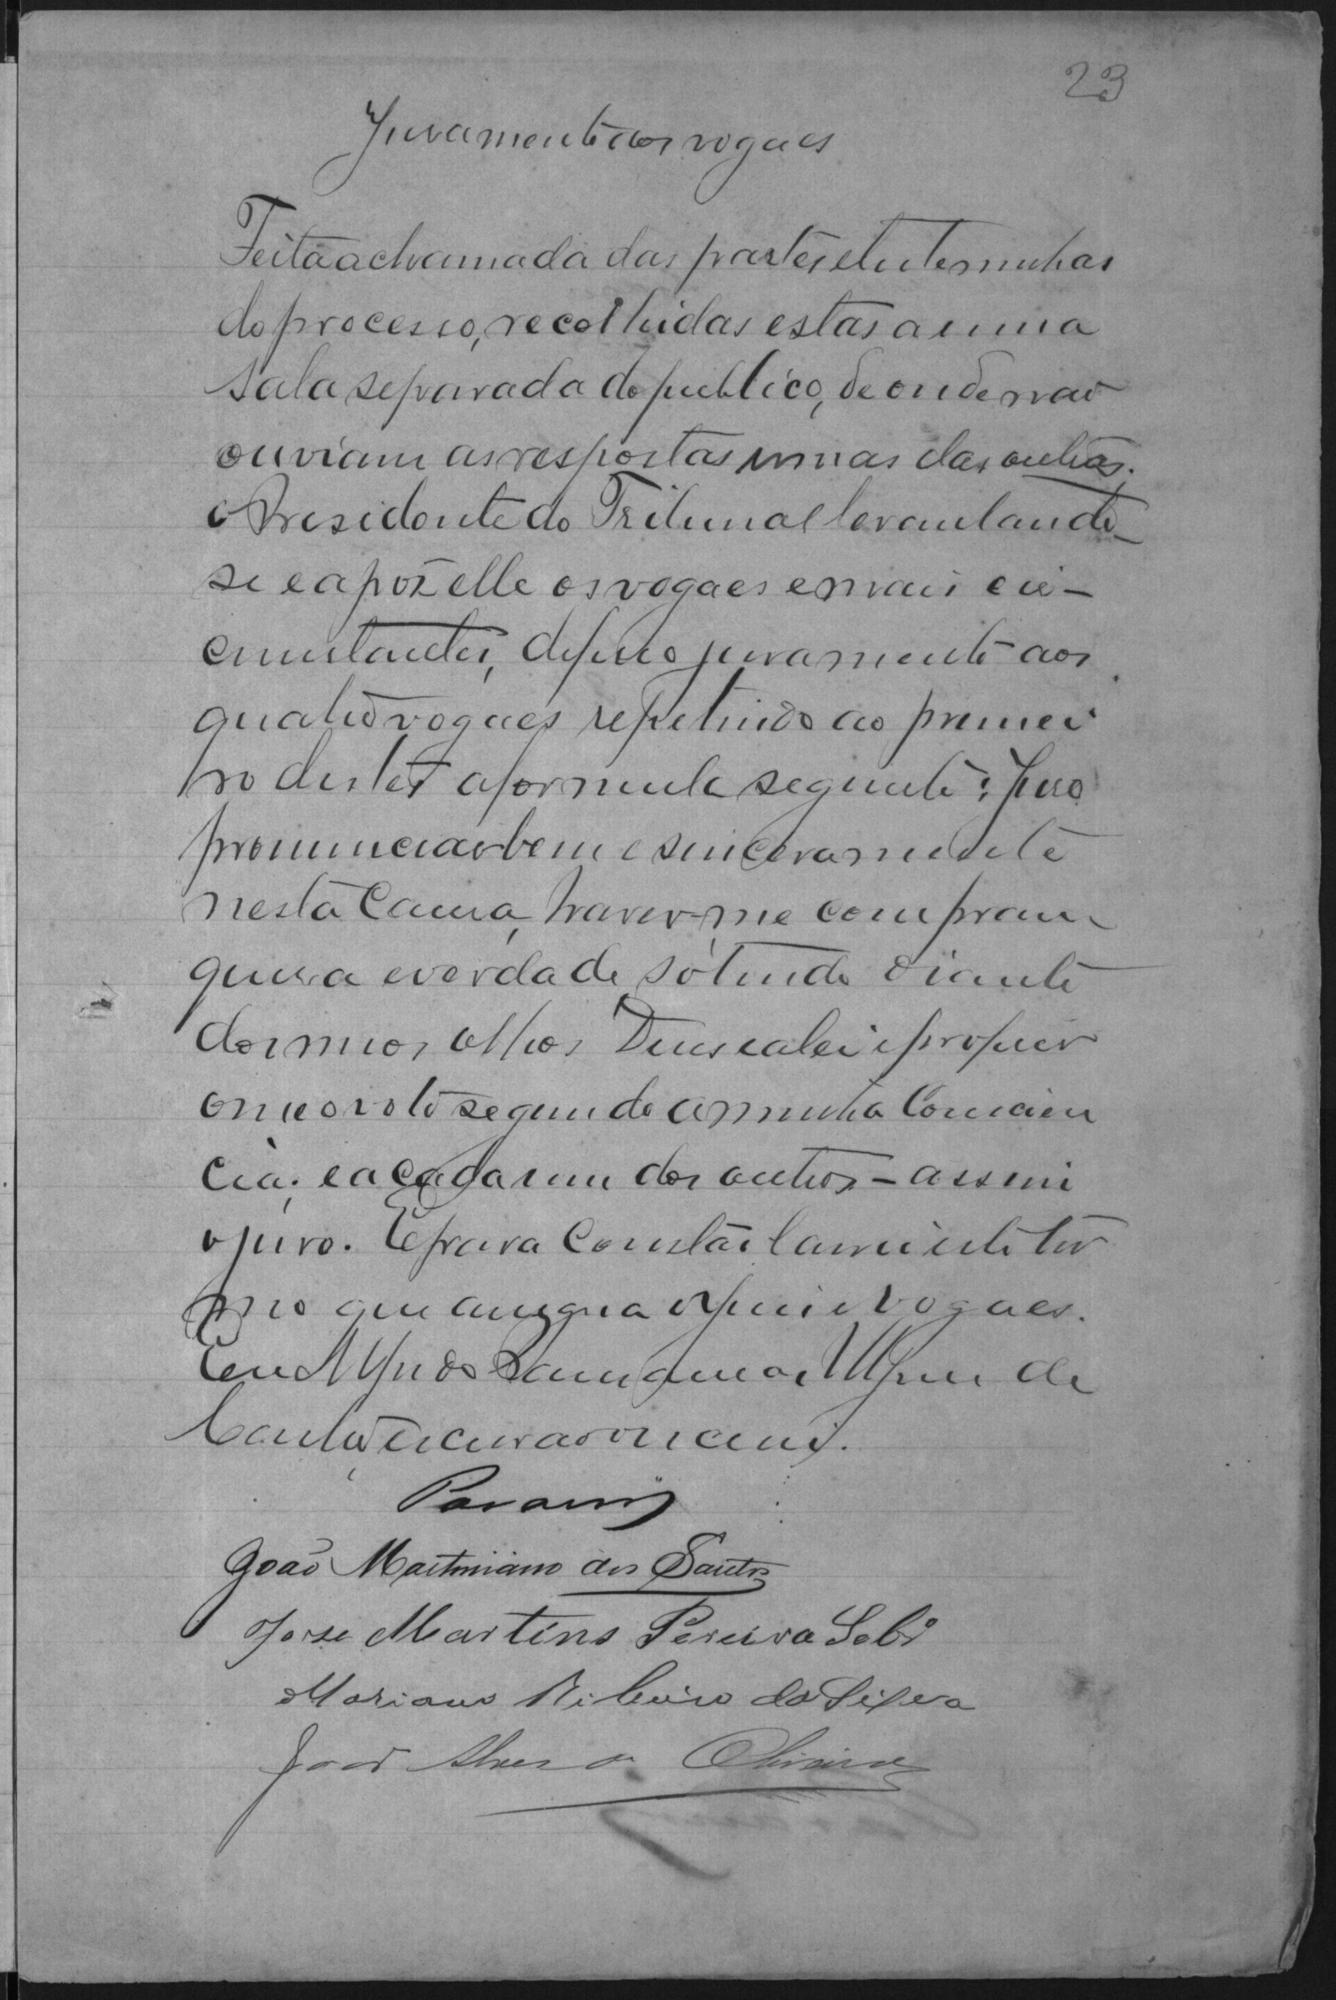 23
Juramento aos vogaes
Feita a chamada das partes e testemunhas
do processo, recolhidas estas a uma
sala separada do publico, de onde não
ouviam as respostas umas das outras,
o Presidente do Tribunal levantando-
se e apoz elle os vogaes e mais cir-
cunstantes, deferio juramento aos
quatro vogaes repetindo ao primei
ro destes a formula seguinte: Juro
pronunciar bem e sinceramente
nesta Causa, haver-me com fran
quesa e verdade, só tendo diante
dos meos olhos Deus e a lei e proferir
o meo voto segundo a minha Conscien
cia; e a cada um dos outros – assim
o juro. E para Constar lavrei este ter
mo que assigna o Juiz e vogaes.
Eu
escrivão o escrevi.
João Martiniano dos Santos
José Martins Pereira
Mariano Ribeiro da Silva
João Alves de Oliveira